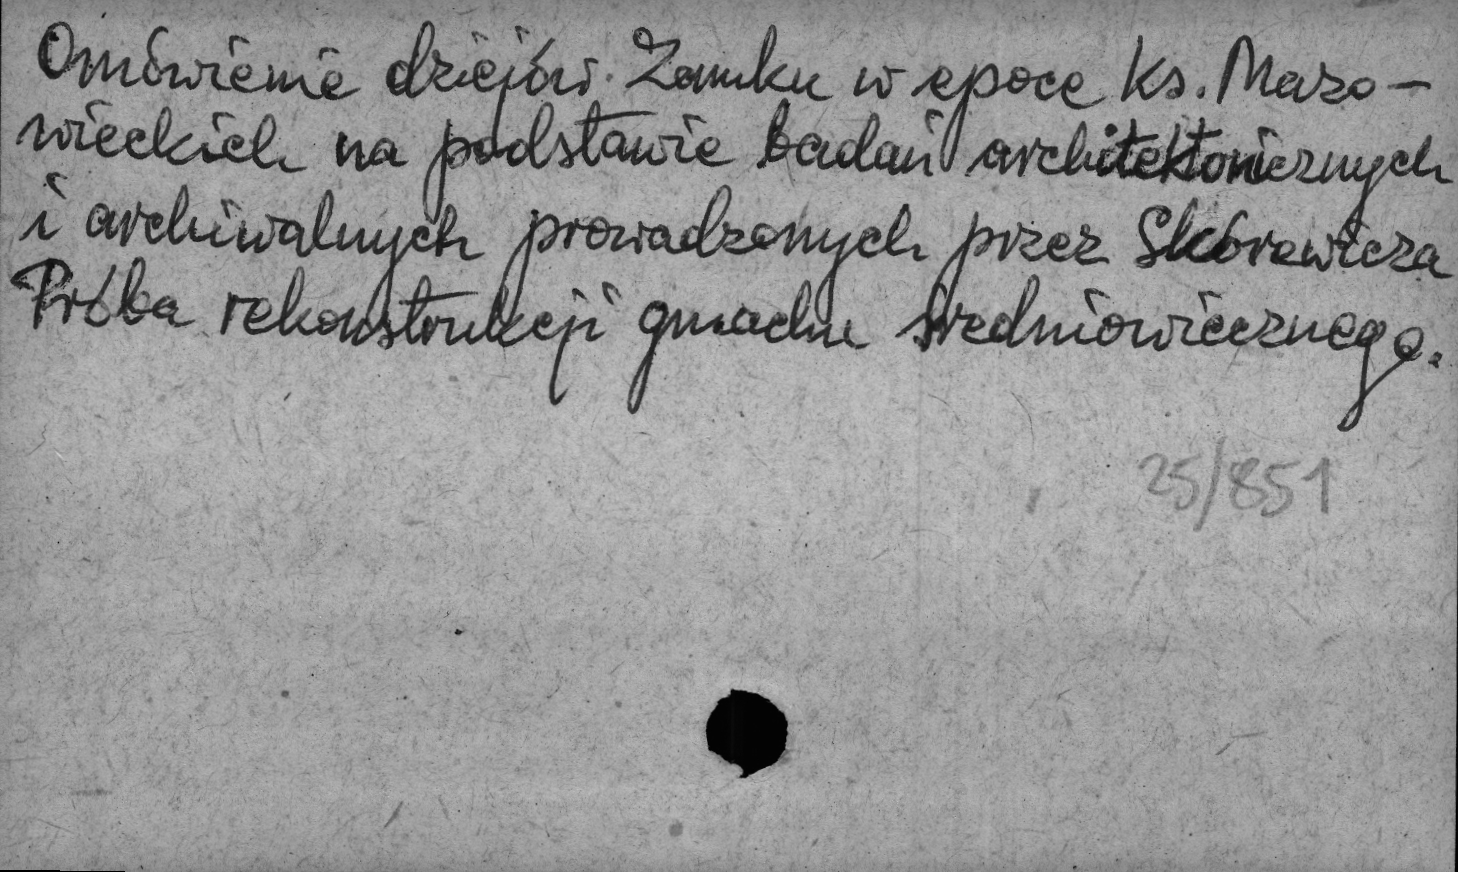 Omówienie dziejów Zamku w epoce Ks. Mazo-
wieckich na podstawie badań architektonicznych
i archiwalnych prowadzonych przez Skórewicza
Próba rekonstrukcji gmachu średniowiecznego.
25/851